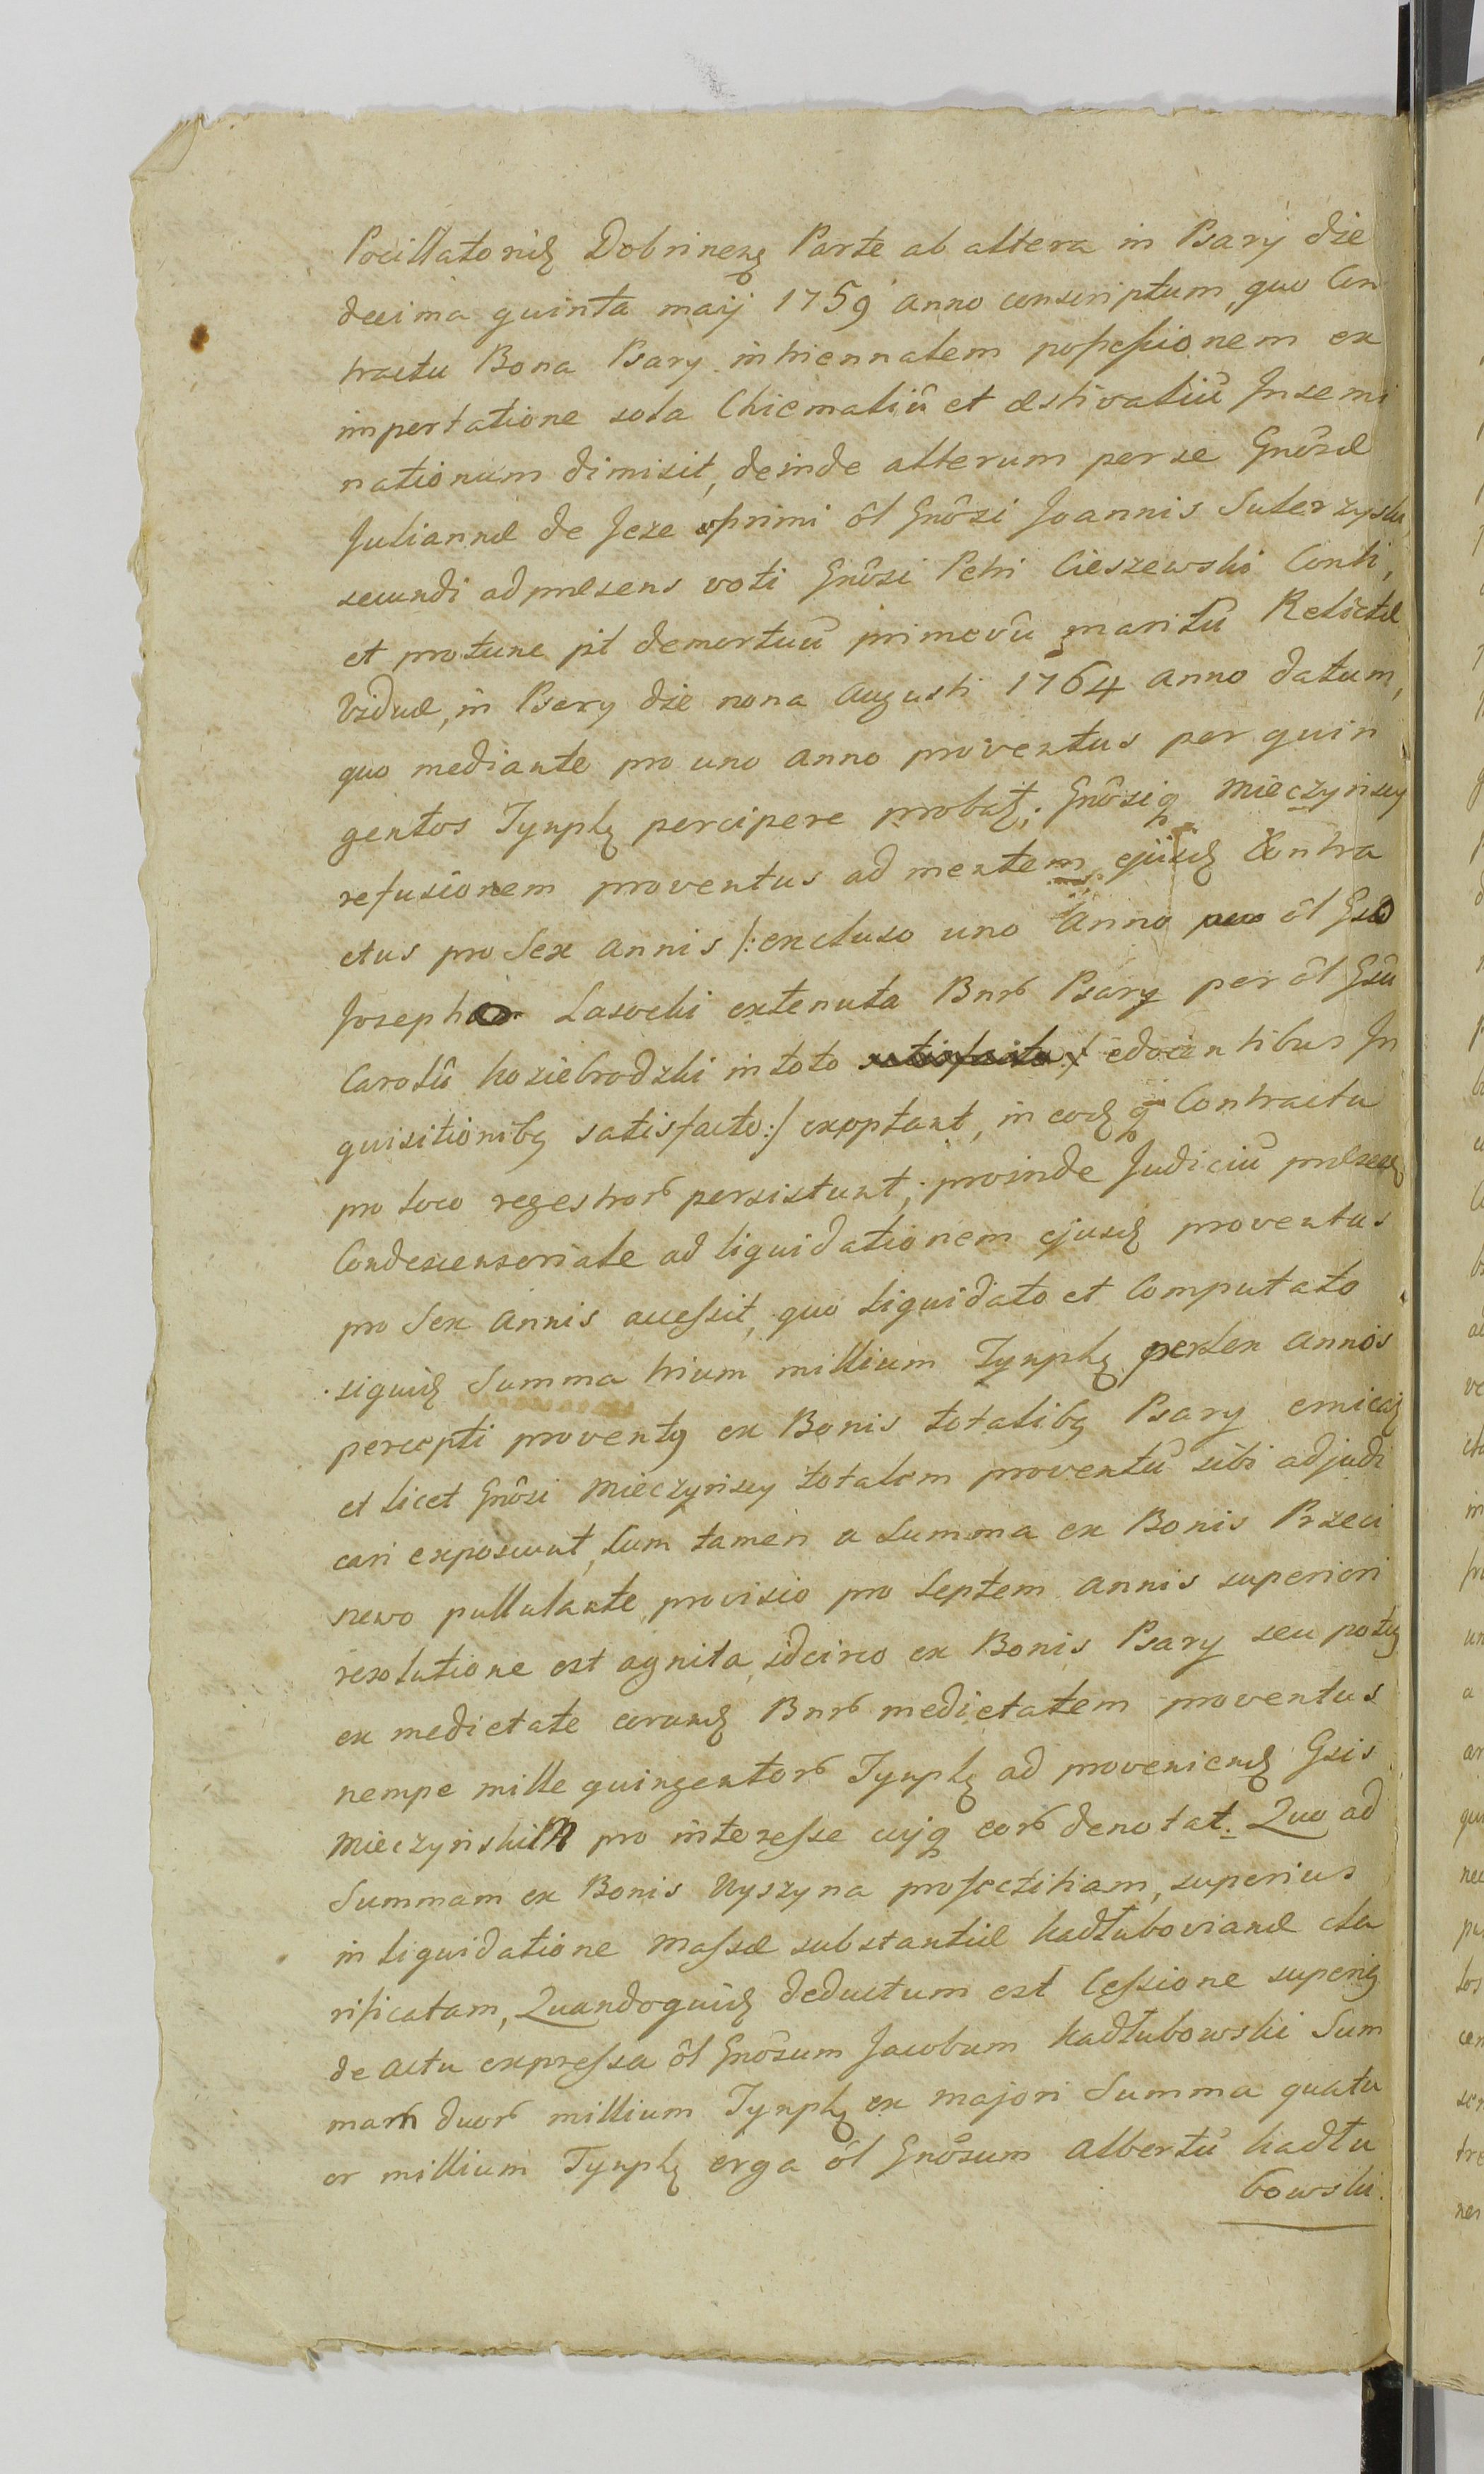 Pocillatorid[ę] Dobrinens[ę] Parte ab altera in Psary die
decima quinta maij 1759 anno conscriptum, quo Con
tractu Bona Psary in triennalem possessionem ex
impertatione sola Chiemaliū et æstivaliū Insemi
nationum dimisit, deinde alterum per se Gnôsæ
Juliannæ de Jeze primi ôl Gnôsi Joannis Suterzyski,
secundi ad præsens voti Gnôsi Petri Cieszewski Conti,
et protunc pt demortuū primevū maritū Relictæ
Viduæ, in Psary die nona Augusti 1764 anno datum,
quo mediante pro uno anno proventus per quin
gentos Tynph[ę] percipere probat[ę]; Gnôsiq Mieczynscy
refusionem proventus ad mentem ejusd[ę] Contra
ctus pro Sex annis /: excluso uno Anno ôl Gsō
Josepho Lasocki extenuta Bnr[um] Psary per ôl Gsū
Carolū Koziebrodzki in toto edocentibus In
quisitionib[us] satisfacto :/ exoptant, in eod[ę]q Contractu
pro loco regestror[um] persistunt, proinde Judiciū præsens
Condescensoriale ad liquidationem ejusd[ę] proventus
pro Sex Annis accessit, quo liquidato et Computato
siquid[ę] Summa trium millium Tynph[ę] per Sex annos
percepti provent[us] ex Bonis totalib[us] Psary emicat[ę]
et licet Gnôsi Mieczynscy totalem proventū sibi adjudi
cari exposcunt, Cum tamen a Summa ex Bonis Przeci
szewo pullulante, provisio pro Septem annis superiori
resolutione est agnita, idcirco ex Bonis Psary seu potius
ex medietate eorund[ę] Bnr[um] medietatem proventus
nempe mille quingentor[um] Tynph[ę] ad proveniend[ę] Gsis
Mieczynskim pro interesse cujq eor[um] denotat. Quo ad
Summam ex Bonis Wyszyna profectitiam, superius
in liquidatione Massæ substantiæ Kadłubovianæ cla
rificatam, Quandoquid[ę] deductum est Cessione superi[us]
de actu expressa ôl Gnôsum Jacobum Kadłubowski Sum
mam duor[um] millium Tynph[ę] ex majori Summa quatu
or millium Tynph[ę] erga ôl Gnôsum Albertū Kadłu
bowski